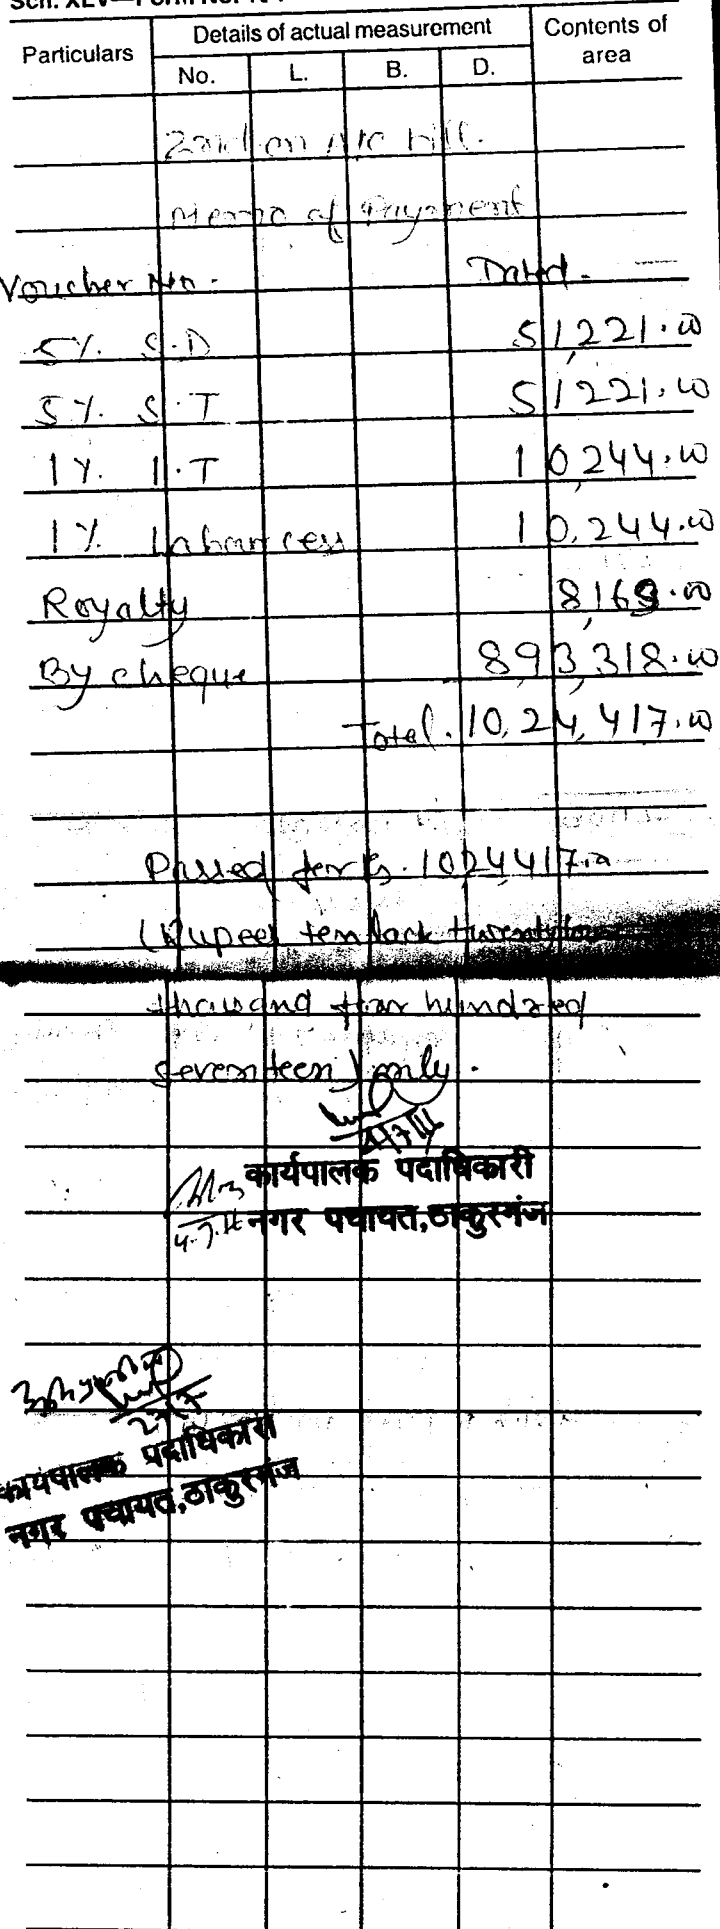 Sch. XLV—Form No.
Particulars Details of actual measurement Contents of area
No. L. B. D.
2nd on A/C bill.
Memo of Payment
Voucher No. Dated. —
5% S.D 51,221.00
5% S.T 51221.00
1% I.T 10,244.00
1% Labour cess 10,244.00
Royalty 8,169.00
By cheque 8,93,318.00
Total. 10,24,417.00
Passed for Rs. 1024417.00
(Rupees ten lack twenty four
thousand four hundred
seventeen) only.
4/7/11
कार्यपालक पदाधिकारी
4.7.11 नगर पंचायत,ठाकुरगंज
कार्यपालक पदाधिकारी
नगर पंचायत,ठाकुरगंज